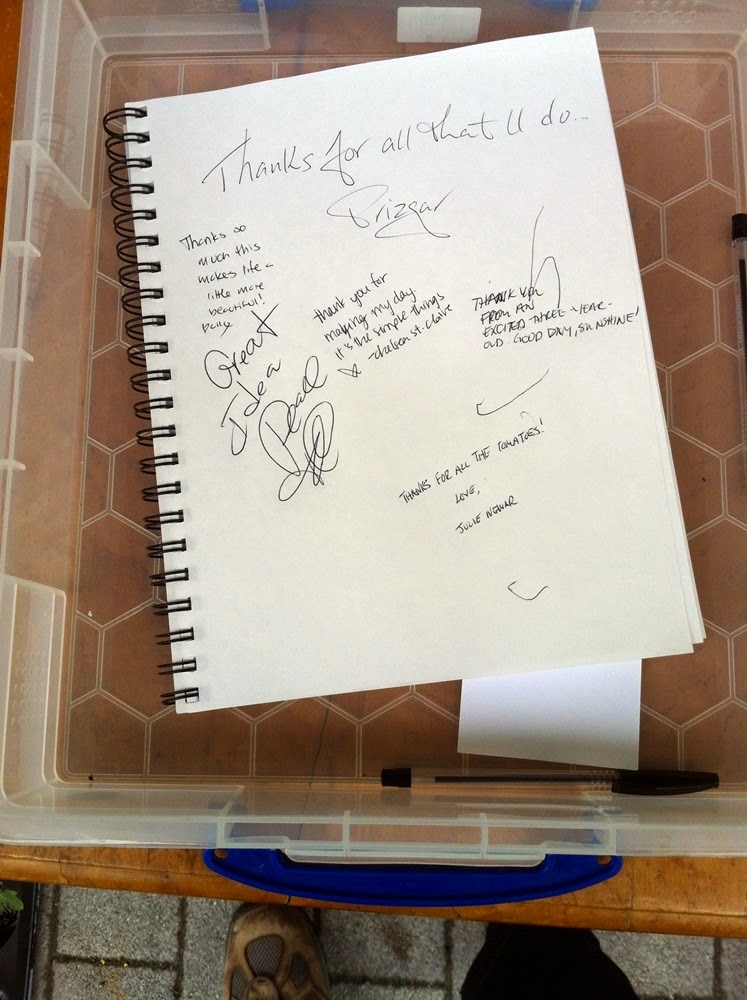 Thanks for all that'll do...
Brizgar
Thanks so
much this
makes life a
little more
beautiful!
Great
Idea
Peace
thank you for
making my day
it's the simple things
- chelsea st. claire
THANK YOU
FROM AN
EXCITED THREE-YEAR-
OLD GOOD DAY, SUNSHINE!
THANKS FOR ALL THE TOMATOES!
LOVE,
JULIE